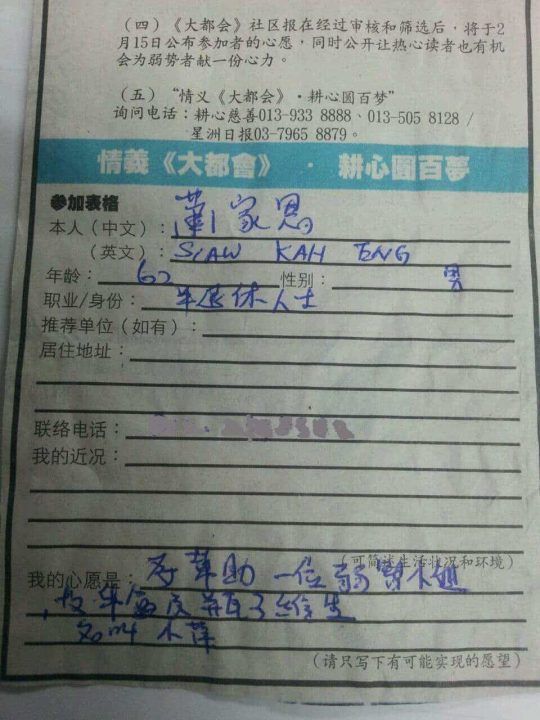 （四）《大都会》社区报在经过审核和筛选后，将于2
月15日公布参加者的心愿，同时公开让热心读者也有机
会为弱势者献一份心力。
（五）“情义《大都会》·耕心圆百梦”
询问电话：耕心慈善013-933 8888、013-505 8128 /
星洲日报03-7965 8879。
情義《大都會》 · 耕心圓百夢
参加表格
本人（中文）：蕭家恩
（英文）：SIAW KAH ENG
年龄： 60 性别： 男
职业/身份：半退休人士
推荐单位（如有）：
居住地址：
联络电话：
我的近况：
（可简述生活状况和环境）
我的心愿是： 帮助一位弱
名叫 小萍
（请只写下有可能实现的愿望）